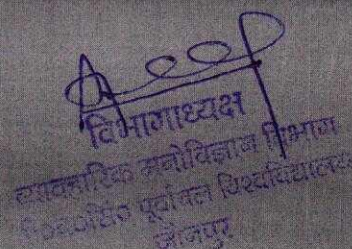 विभागाध्यक्ष
व्यावहारिक मनोविज्ञान विभाग
पूर्वांचल विश्वविद्यालय
जौनपुर